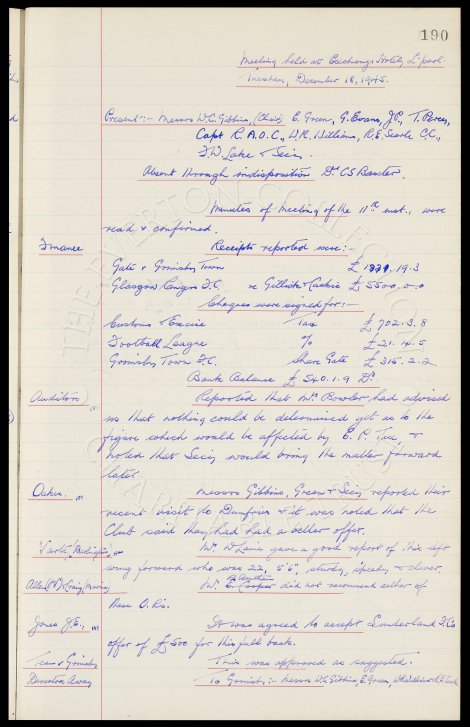 190
Meeting held at Exchange Hotel, L'pool.
Tuesday, December 18, 1945.
Present:- Messrs W.C. Gibbins, (Chair) E. Green, G. Evans, J.P., T. Percy,
Capt R.A.O.C., W.R. Williams, R.E. Searle C.C.,
F.W. Lake & Secy.
Absent through indisposition Dr CS Baxter.
Minutes of meeting of the 11th inst., were
read & confirmed.
Finance Receipts reported were:-
Gate v Grimsby Town £ .19.3
Glasgow Rangers F.C. re Gillick & Caskie £ 5500.0.0
Cheques were signed for:-
Customs & Excise Tax £ 702.3.8
Football League % £ 21.4.5
Grimsby Town F.C. Share Gate £ 315.2.2
Bank Balance £ 540.1.9 Dr
Auditors Reported that Mr Fowler had advised
us that nothing could be determined yet as to the
figure which would be affected by E.P. Tax, &
noted that Secy would bring the matter forward
later.
Oakes. Messrs Gibbins, Green & Secy reported their
recent visit to Dumfries & it was noted that the
Club said they had had a better offer.
Mr W Lane gave a good report of this left
wing forward who was 22, 5'6", sturdy, speedy & clever.
Mr E. Cooper did not recommend either of
these O.Ls.
Jones J.E., It was agreed to accept Sunderland F.Cs
offer of £500 for this full back.
Team v Grimsby This was approved as suggested.
Directors Away To Grimsby:- Messrs W.C. Gibbins, E. Green,